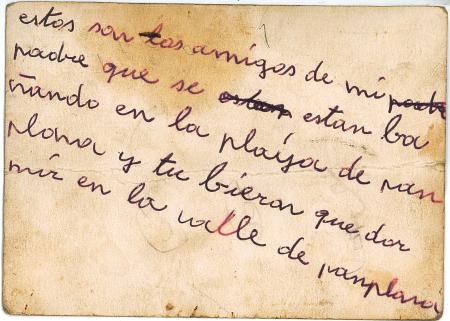 estos son los amigos de mi padre
padre que se estan estan ba
ñando en la plaija de pan
plona y tu bieron que dor
mir en la valle de panplana